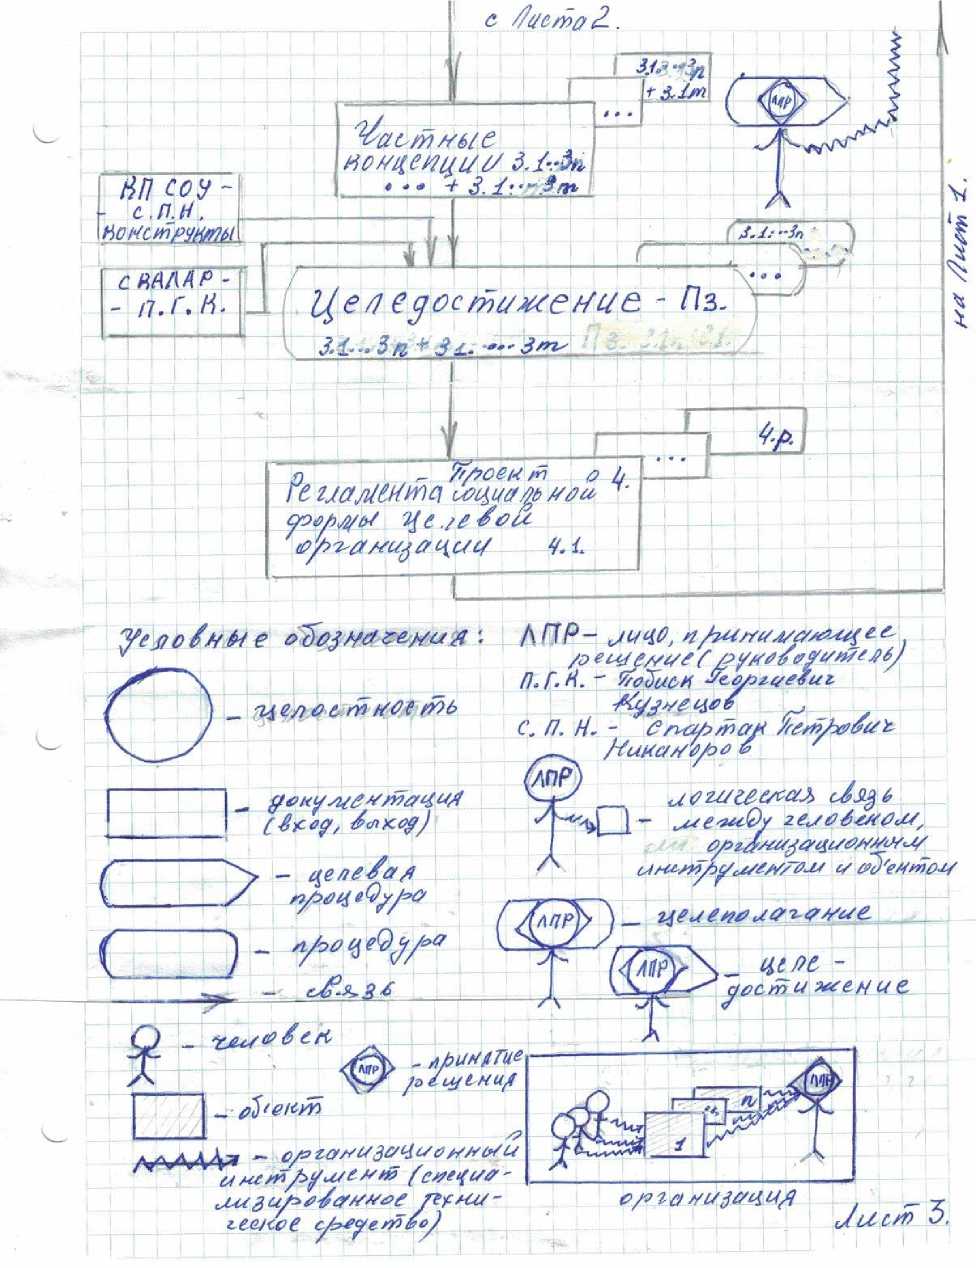 с Листа 2.
3.1.··3n
+ 3.1m
...
ЛПР
Частные
концепции 3.1··3n
... + 3.1···3m
КП СОУ -
- С.П.Н.
конструкты
СКАЛАР -
- П.Г.К.
3.1···3n
...
Целедостижение - П3.
3.1...3n + 31. ···3m П3. 3.1n
на Лист 1.
4.р.
...
Проект о 4.
Регламента социальной
формы целевой
организации 4.1.
Условные обозначения:
- целостность
- документация
(вход, выход)
- целевая
процедура
- процедура
- связь
- человек
ЛПР - принятие
решения
- об'ект
- организационный
инструмент (специа-
лизированное техни-
ческое средство)
ЛПР - лицо, принимающее
решение (руководитель)
П.Г.К. - Побиск Георгиевич
Кузнецов
С.П.Н. - Спартак Петрович
Никаноров
ЛПР
логическая связь
- между человеком,
организационным
инструментом и об'ектом
ЛПР - целеполагание
ЛПР - целе-
достижение
1
..
n
ЛПР
организация
Лист 3.